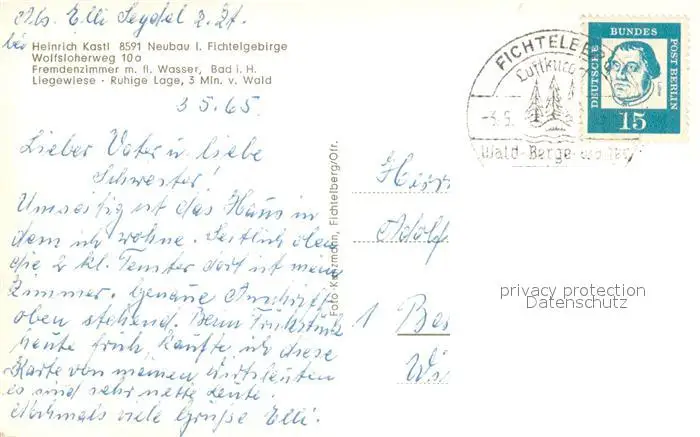 Abs. Elli Seydel z. Zt.
bei Heinrich Kastl 8591 Neubau i. Fichtelgebirge
Wolfsloherweg 10a
Fremdenzimmer m. fl. Wasser, Bad i. H.
Liegewiese - Ruhige Lage, 3 Min. v. Wald
3 5. 65.
Lieber Vater u. liebe
Schwester!
Umseitig ist das Haus in
dem ich wohne. Seitlich oben
die 2 kl. Fenster dort ist mein
Zimmer. Genaue Anschrift
oben stehend. Beim Frühstück
heute früh, kaufte ich diese
Karte von meinen Wirtsleuten
es sind sehr nette Leute.
Nochmals viele Grüße Elli.
Foto-Kotzmann, Fichtelberg/Ofr.
FICHTELBE
Luftkuro
-3.5.
Wald-Berge-
DEUTSCHE BUNDES POST BERLIN
15
Herr
Adolf
1 Be
privacy protection
Datenschutz